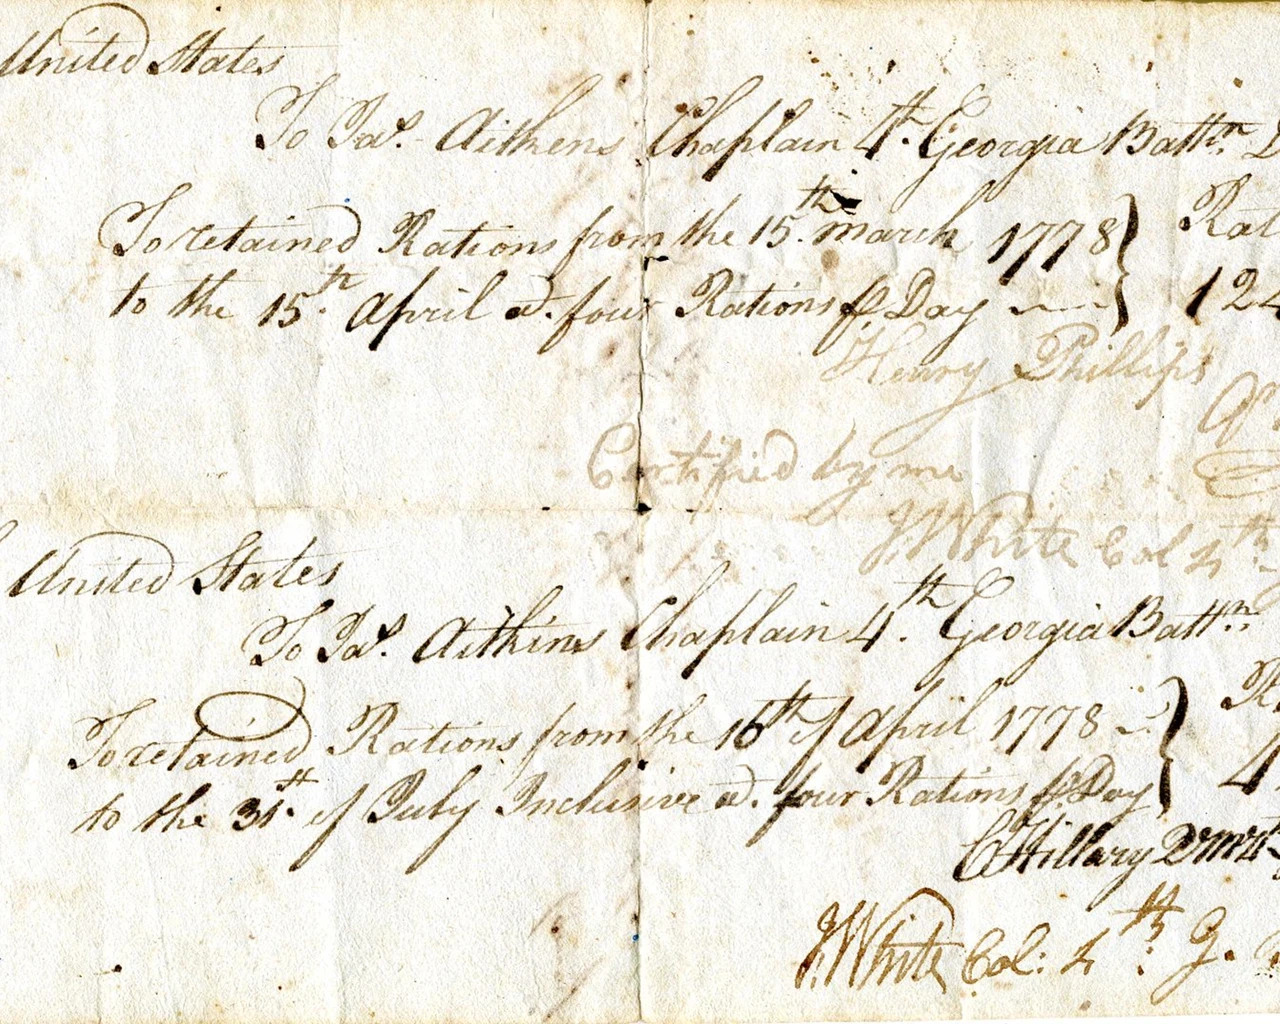 United States
To Jas. Aitkens Chaplain 4th. Georgia Battn. D
To retained Rations from the 15th. march 1778
to the 15th. April a. four Rations ⅌ Day
Rat
124
Henry Phillips
Certified by me
J White Col 4th
United States
To Jas. Aitkins Chaplain 4th. Georgia Battn.
To retained Rations from the 16th of April 1778
to the 31st. of July Inclusive a. four Rations ⅌ Day
R
4
C Hillary
J White Col: 4th. G.